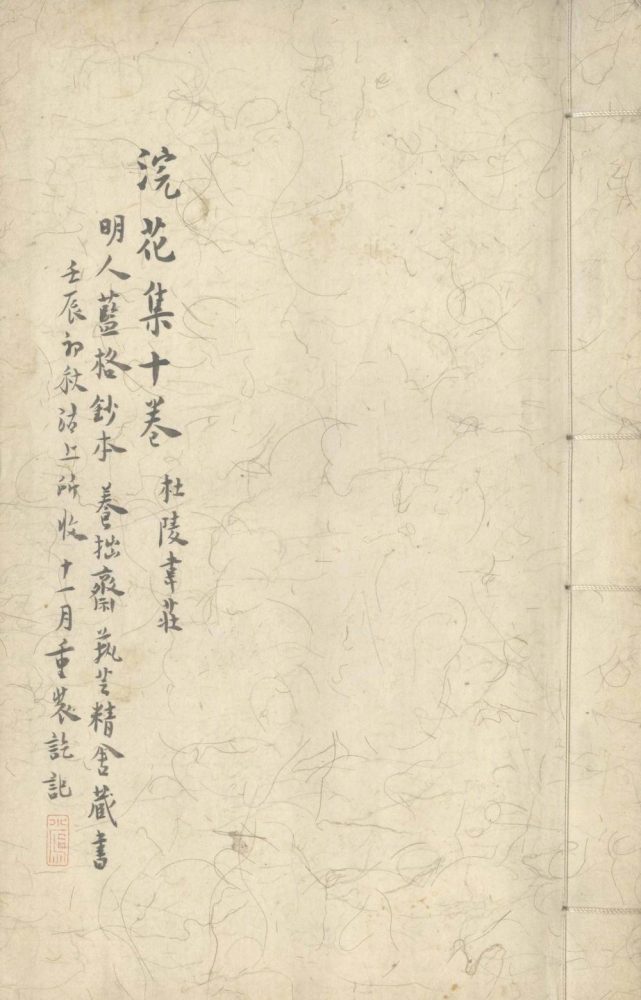 浣花集十卷 杜陵韋莊
明人藍格鈔本 養拙齋藝芸精舍藏書
壬辰初秋沽上所收十一月重裝訖記